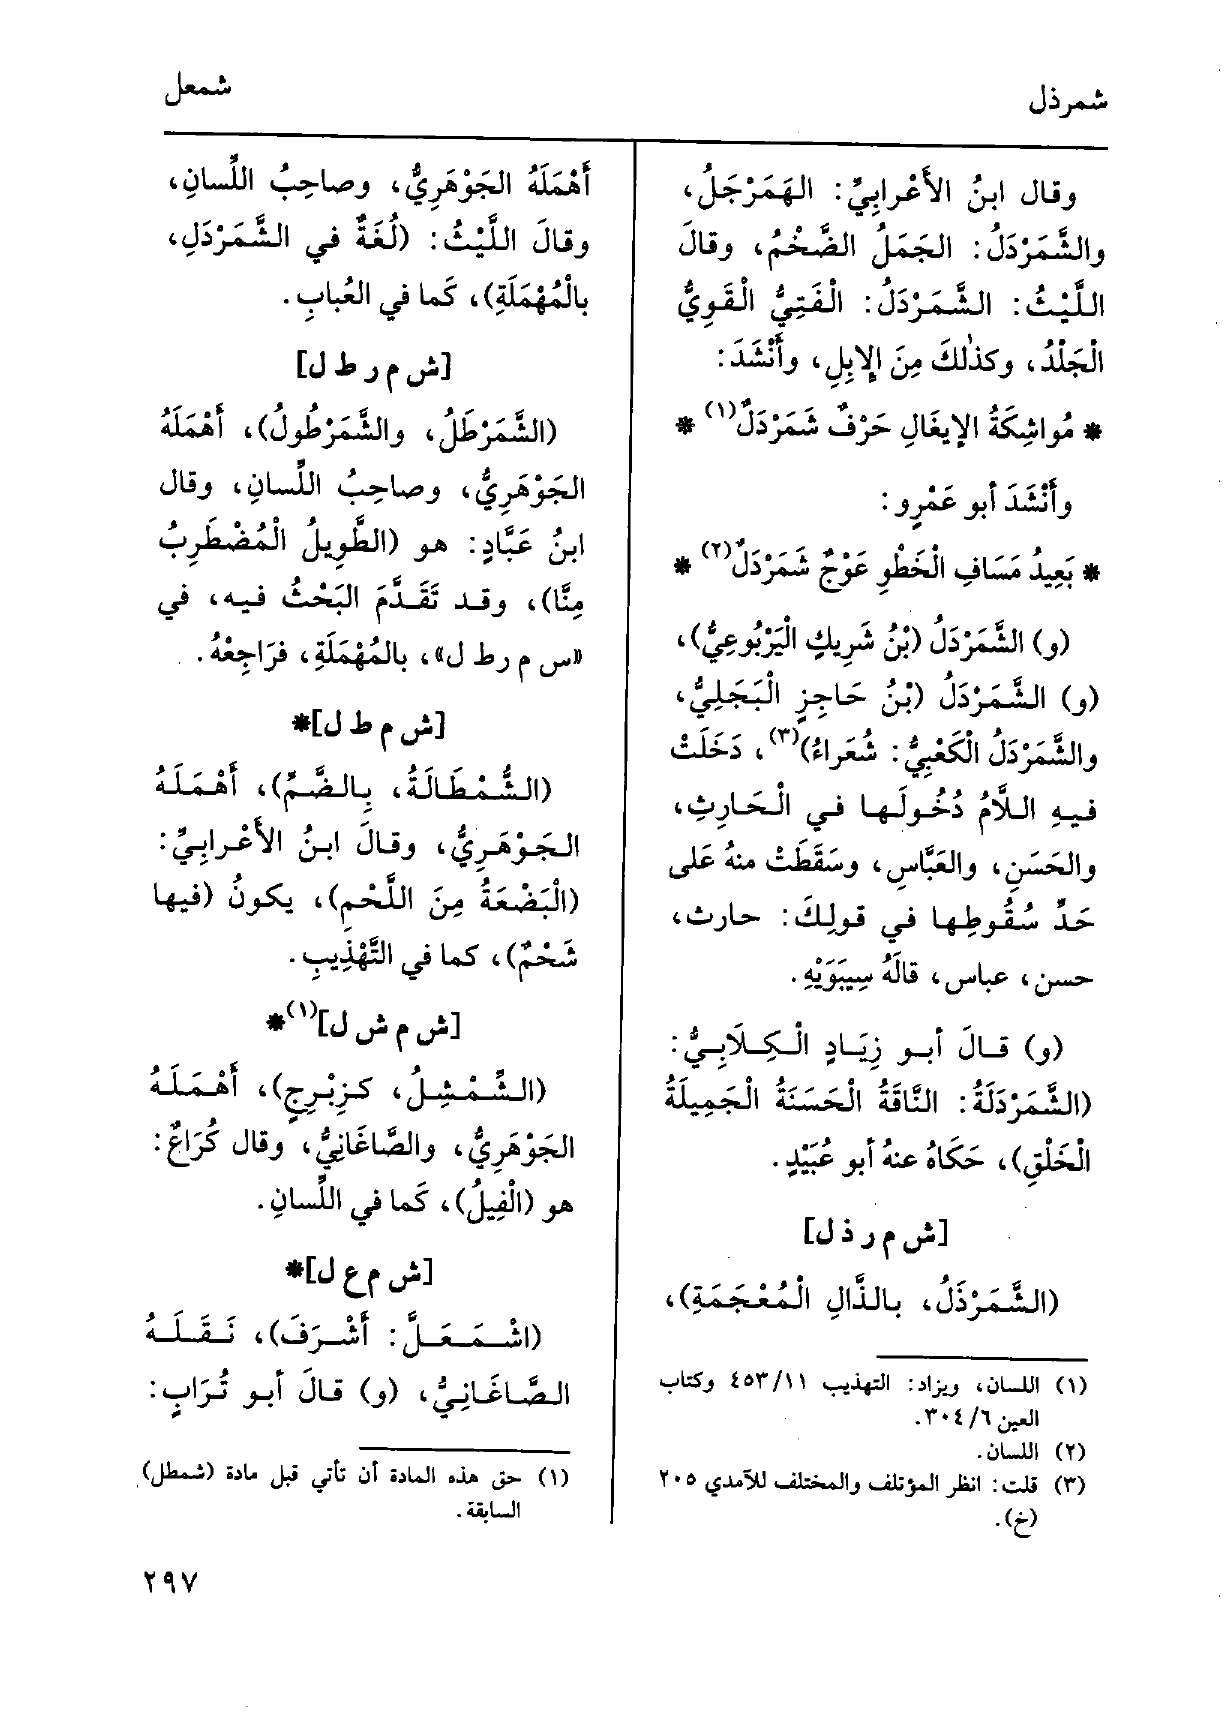 شمرذل
شمعل
وقال ابنُ الأَعْرابِيِّ: الهَمَرْجَلُ،
والشَّمَرْدَلُ: الجَمَلُ الضَّخْمُ، وقالَ
اللَّيْثُ: الشَّمَرْدَلُ: الْفَتِيُّ الْقَوِيُّ
الْجَلْدُ، وكذٰلكَ مِنَ الإِبِلِ، وأَنْشَدَ:
* مُواشِكَةُ الإيغَالِ حَرْفٌ شَمَرْدَلٌ(١) *
وأَنْشَدَ أبو عَمْرٍو:
* بَعِيدُ مَسَافِ الْخَطْوِ عَوْجٌ شَمَرْدَلٌ(٢) *
(و) الشَّمَرْدَلُ (بْنُ شَرِيكٍ الْيَرْبُوعِيُّ)،
(و) الشَّمَرْدَلُ (بْنُ حَاجِزٍ الْبَجَلِيُّ،
والشَّمَرْدَلُ الْكَعْبِيُّ: شُعَراءُ)(٣)، دَخَلَتْ
فيهِ اللَّامُ دُخُولَها في الْحَارِثِ،
والحَسَنِ، والعَبَّاسِ، وسَقَطَتْ منهُ عَلى
حَدِّ سُقُوطِها في قولِكَ: حارث،
حسن، عباس، قالَهُ سِيبَوَيْهِ.
(و) قالَ أبو زِيَادٍ الْكِلَابِيُّ:
(الشَّمَرْدَلَةُ: النَّاقَةُ الْحَسَنَةُ الْجَمِيلَةُ
الْخَلْقِ)، حَكَاهُ عنهُ أبو عُبَيْدٍ.
[ش م ر ذ ل]
(الشَّمَرْذَلُ، بالذَّالِ الْمُعْجَمَةِ)،
(١) اللسان، ويزاد: التهذيب ١١/ ٤٥٣ وكتاب
العين ٦/ ٣٠٤.
(٢) اللسان.
(٣) قلت: انظر المؤتلف والمختلف للآمدي ٢٠٥
(خ).
أَهْمَلَهُ الجَوْهَرِيُّ، وصاحِبُ اللِّسانِ،
وقالَ اللَّيْثُ: (لُغَةٌ في الشَّمَرْدَلِ،
بالْمُهْمَلَةِ)، كَما في العُبابِ.
[ش م ر ط ل]
(الشَّمَرْطَلُ، والشَّمَرْطُولُ)، أَهْمَلَهُ
الجَوْهَرِيُّ، وصاحِبُ اللِّسانِ، وقال
ابنُ عَبَّادٍ: هو (الطَّوِيلُ الْمُضْطَرِبُ
مِنَّا)، وقد تَقَدَّمَ البَحْثُ فيه، في
«س م ر ط ل»، بالمُهْمَلَةِ، فرَاجِعْهُ.
[ش م ط ل]*
(الشُّمْطَالَةُ، بِالضَّمِّ)، أَهْمَلَهُ
الجَوْهَرِيُّ، وقالَ ابنُ الأَعْرابِيِّ:
(الْبَضْعَةُ مِنَ اللَّحْمِ)، يكونُ (فيها
شَحْمٌ)، كما في التَّهْذِيبِ.
[ش م ش ل](١)*
(الشِّمْشِلُ، كزِبْرِجٍ)، أَهْمَلَهُ
الجَوْهَرِيُّ، والصَّاغَانِيُّ، وقال كُرَاعٌ:
هو (الْفِيلُ)، كَما في اللِّسانِ.
[ش م ع ل]*
(اشْمَعَلَّ: أَشْرَفَ)، نَقَلَهُ
الصَّاغَانِيُّ، (و) قالَ أبو تُرَابٍ:
(١) حق هذه المادة أن تأتي قبل مادة (شمطل)
السابقة.
٢٩٧